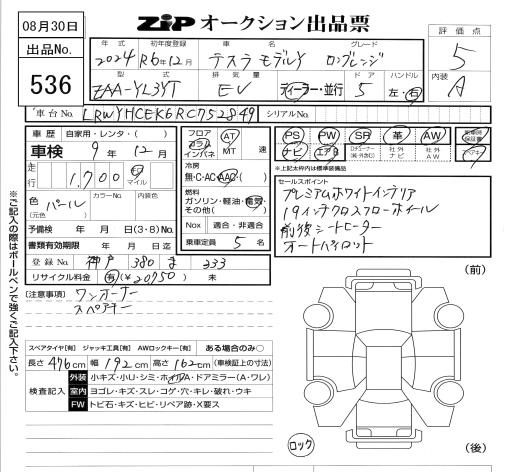 08月30日
出品No.
536
ZIP オークション出品票
評価点
5
内装
A
年式 初年度登録 車名 グレード
2024 R6年12月 テスラ モデルY ロングレンジ
型式 排気量 ドア ハンドル
ZAA-YL3YT EV ディーラー・並行 5 左・右
車台No. LRWYHCEK6RC752849 シリアルNo.
車歴 自家用・レンタ・( )
車検 9年12月
走行 1,700 Km マイル
色 (元色) パール カラーNo. 内装色
予備検 年 月 日(3・8)No.
書類有効期限 年 月 日迄
登録No. 神戸 380 ま 333
リサイクル料金 有(¥20750) 未
フロア コラム インパネ AT MT 速
冷房 無・C・AC・AAC
燃料 ガソリン・軽油・電気・その他( )
Nox 適合・非適合
乗車定員 5名
PS PW SR 革 AW
ナビ エアB 社外ナビ 社外AW
※上記太枠は標準装備品
セールスポイント
プレミアムホワイトインテリア
19インチクロスフローホイール
前後シートヒーター
オートパイロット
[注意事項]
ワンオーナー
スペアキー
スペアタイヤ[有] ジャッキ工具[有] AWロックキー[有] ある場合のみ○
長さ 476cm 幅 192cm 高さ 162cm (車検証上の寸法)
検査記入
外装 小キズ・小U・シミ・ホイルA・ドアミラー(A・ワレ)
室内 ヨゴレ・キズ・スレ・コゲ・穴・キレ・破れ・ウキ
FW トビ石・キズ・ヒビ・リペア跡・X要ス
※ご記入の際はボールペンで強くご記入下さい。
(前)
(後)
ロック